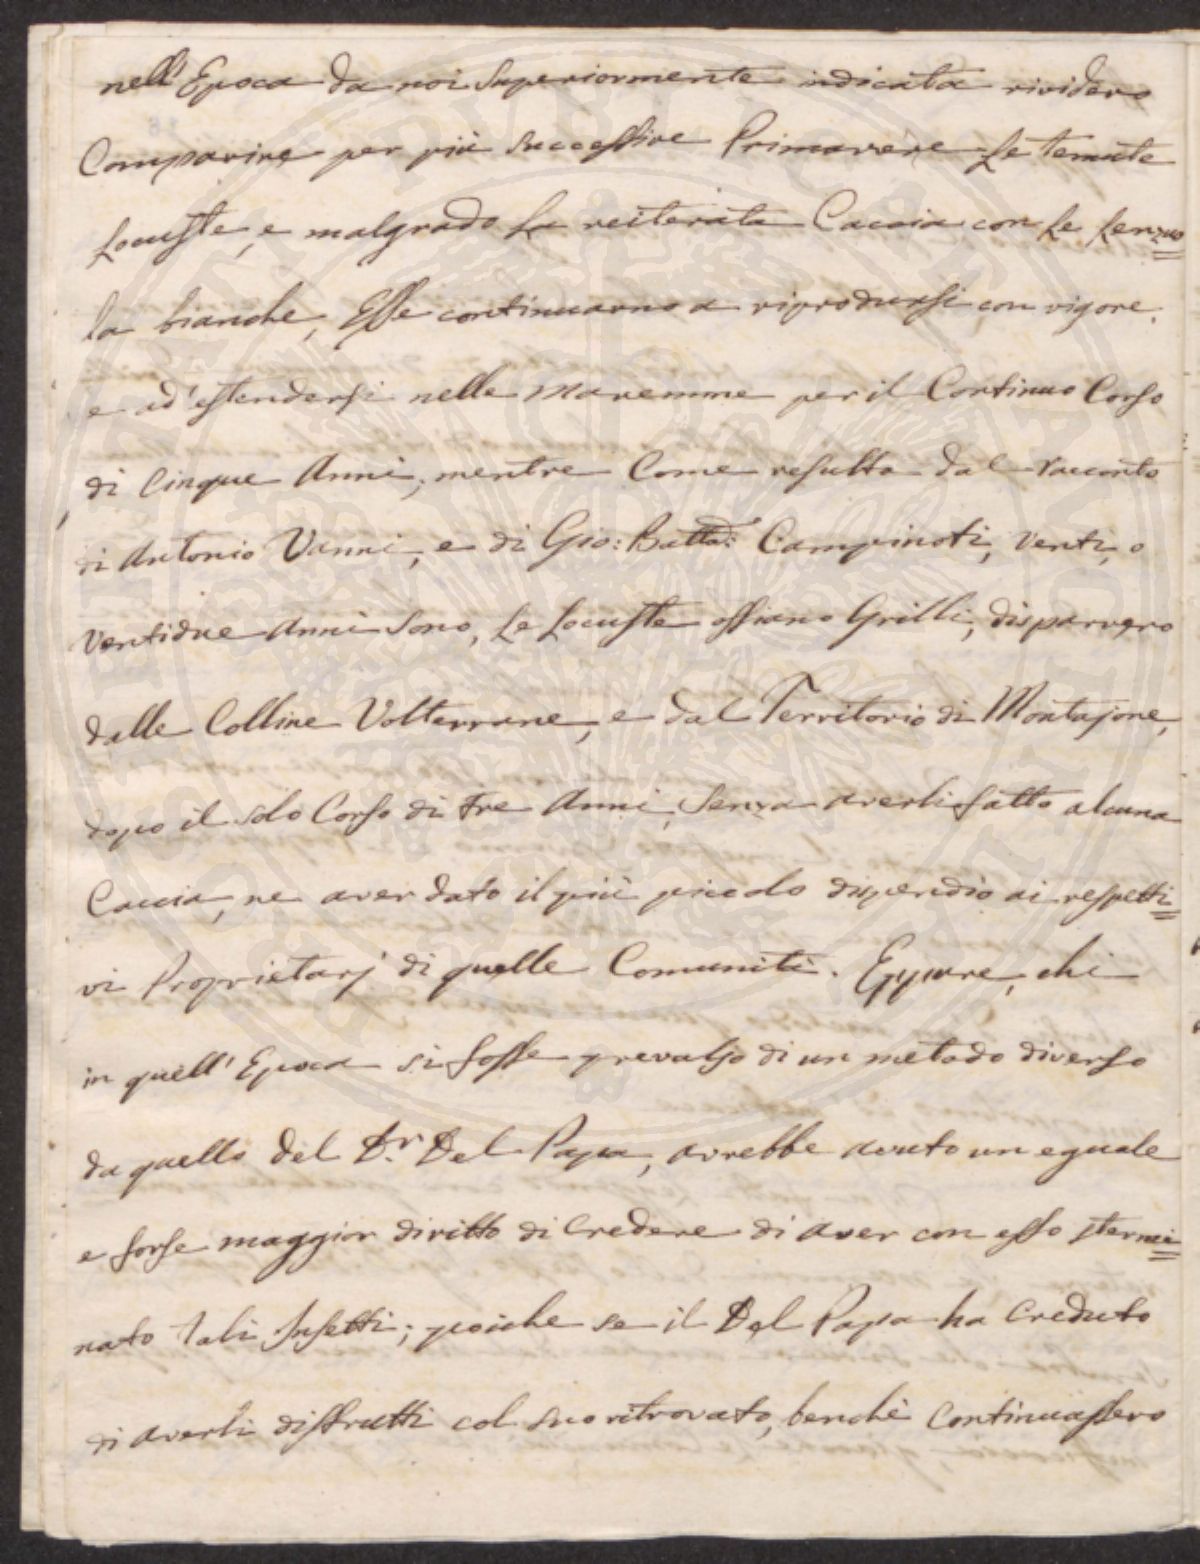 nell'Epoca da noi Superiormente indicata rividero
Comparire per più Successive Primavere Le temute
Locuste, e malgrado La reiterata Caccia con Le Lenzuo=
la bianche, Esse continuarno a riprodursi con vigore,
e ad'estendersi nelle Maremme per il Continuo Corso
di Cinque Anni, mentre Come resulta dal racconto
di Antonio Vanni, e di Gio: Batta: Campinoti, Venti, o
Ventidue Anni Sono, Le Locuste ossiano Grilli, disparvero
dalle Colline Volterrane, e dal Territorio di Montajone,
dopo il solo Corso di Tre Anni, Senza averli fatto alcuna
Caccia, ne aver dato il più piccolo dispendio ai respetti=
vi Proprietarj di quelle Comunità. Eppure, chi
in quell'Epoca si fosse prevalso di un metodo diverso
da quello del Dr. Del Papa, avrebbe avuto un eguale
e forse maggior diritto di Credere di aver con esso stermi=
nato Tali Insetti; poiche se il Del Papa ha Creduto
di averli distrutti col suo ritrovato, benchè Continuassero